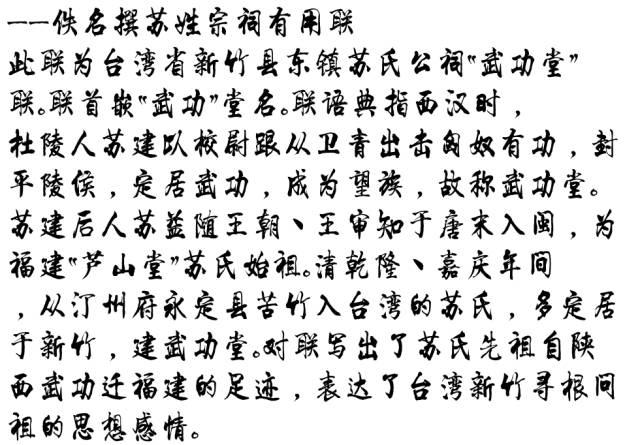 ——佚名撰苏姓宗祠有用联
此联为台湾省新竹县东镇苏氏公祠“武功堂”
联。联首嵌“武功”堂名。联语典指西汉时，
杜陵人苏建以校尉跟从卫青出击匈奴有功，封
平陵侯，定居武功，成为望族，故称武功堂。
苏建后人苏益随王朝、王审知于唐末入闽，为
福建“芦山堂”苏氏始祖。清乾隆、嘉庆年间
，从汀州府永定县苦竹入台湾的苏氏，多定居
于新竹，建武功堂。对联写出了苏氏先祖自陕
西武功迁福建的足迹，表达了台湾新竹寻根问
祖的思想感情。